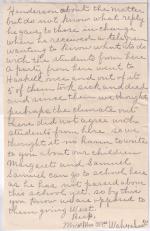 Henderson about the matter,
but do not know what reply
he gave to these in change
when he received a letter,
wanting to know what to do
with the students from here
A party from here went to
Haskell once and out of its
5 of them took sick and died
and since them we thought
perhaps the climate out
there did not agree with
students from here so we
thought it no harm to write
to you about our children.
Margaret and Samuel
Samuel can go to school here
as he has not passed above
this schools yet. so by this
you know we are opposed to
them going West.
Resp.
Mr & Mrs Wm